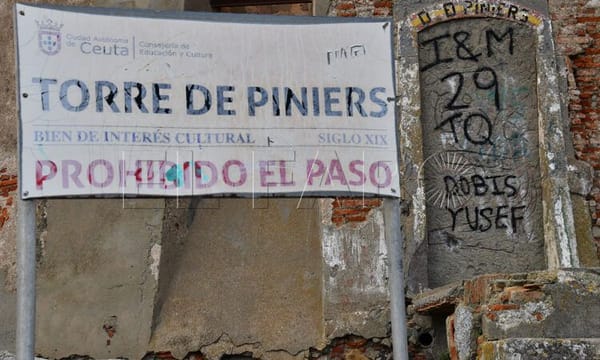 Ciudad Autónoma
de Ceuta
Consejería de
Educación y Cultura
TORRE DE PINIERS
BIEN DE INTERÉS CULTURAL SIGLO XIX
PROHIBIDO EL PASO
PINIERS
I&M
29
YUSEF